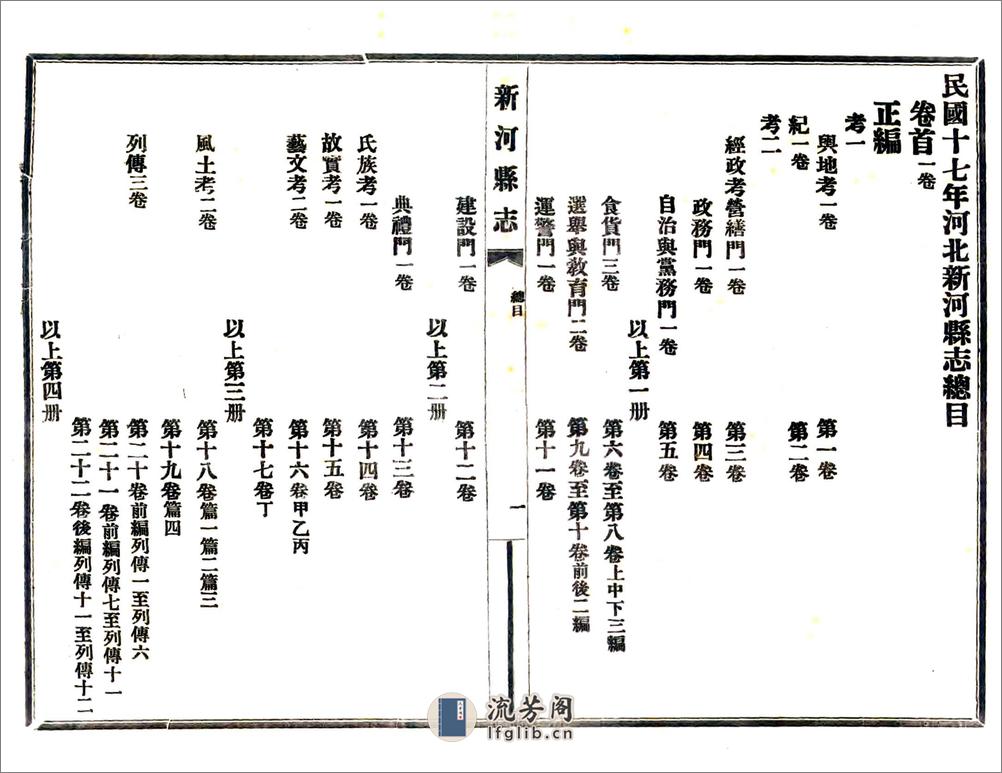 民國十七年河北新河縣志總目
卷首一卷
正編
考一
輿地考一卷 第一卷
紀一卷 第二卷
考二
經政考營繕門一卷 第三卷
政務門一卷 第四卷
自治與黨務門一卷 第五卷
以上第一册
食貨門三卷 第六卷至第八卷上中下三編
選舉與教育門二卷 第九卷至第十卷前後二編
運警門一卷 第十一卷
新河縣志 總目 一
建設門一卷 第十二卷
以上第二册
典禮門一卷 第十三卷
氏族考一卷 第十四卷
故實考一卷 第十五卷
藝文考二卷 第十六卷甲乙丙
第十七卷丁
以上第三册
風土考二卷 第十八卷篇一篇二篇三
第十九卷篇四
列傳三卷 第二十卷前編列傳一至列傳六
第二十一卷前編列傳七至列傳十一
第二十二卷後編列傳十一至列傳十二
以上第四册
流芳阁
lfglib.cn